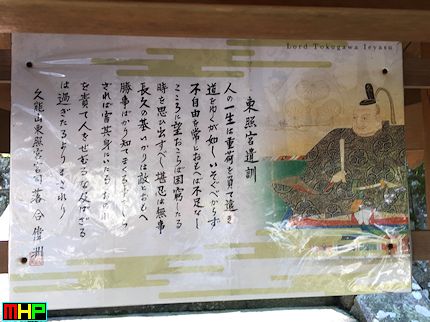 Lord Tokugawa Ieyasu
東照宮遺訓
人の一生は重荷を負て遠き
道をゆくが如しいそぐべからず
不自由を常とおもへば不足なし
こころに望おこらば困窮したる
時を思ひ出すべし堪忍は無事
長久の基いかりは敵とおもへ
勝事ばかり知てまくる事をしら
ざれば害其身にいたるおのれ
を責て人をせむるな及ばざる
は過ぎたるよりまされり
久能山東照宮宮司 落合偉洲
MHP